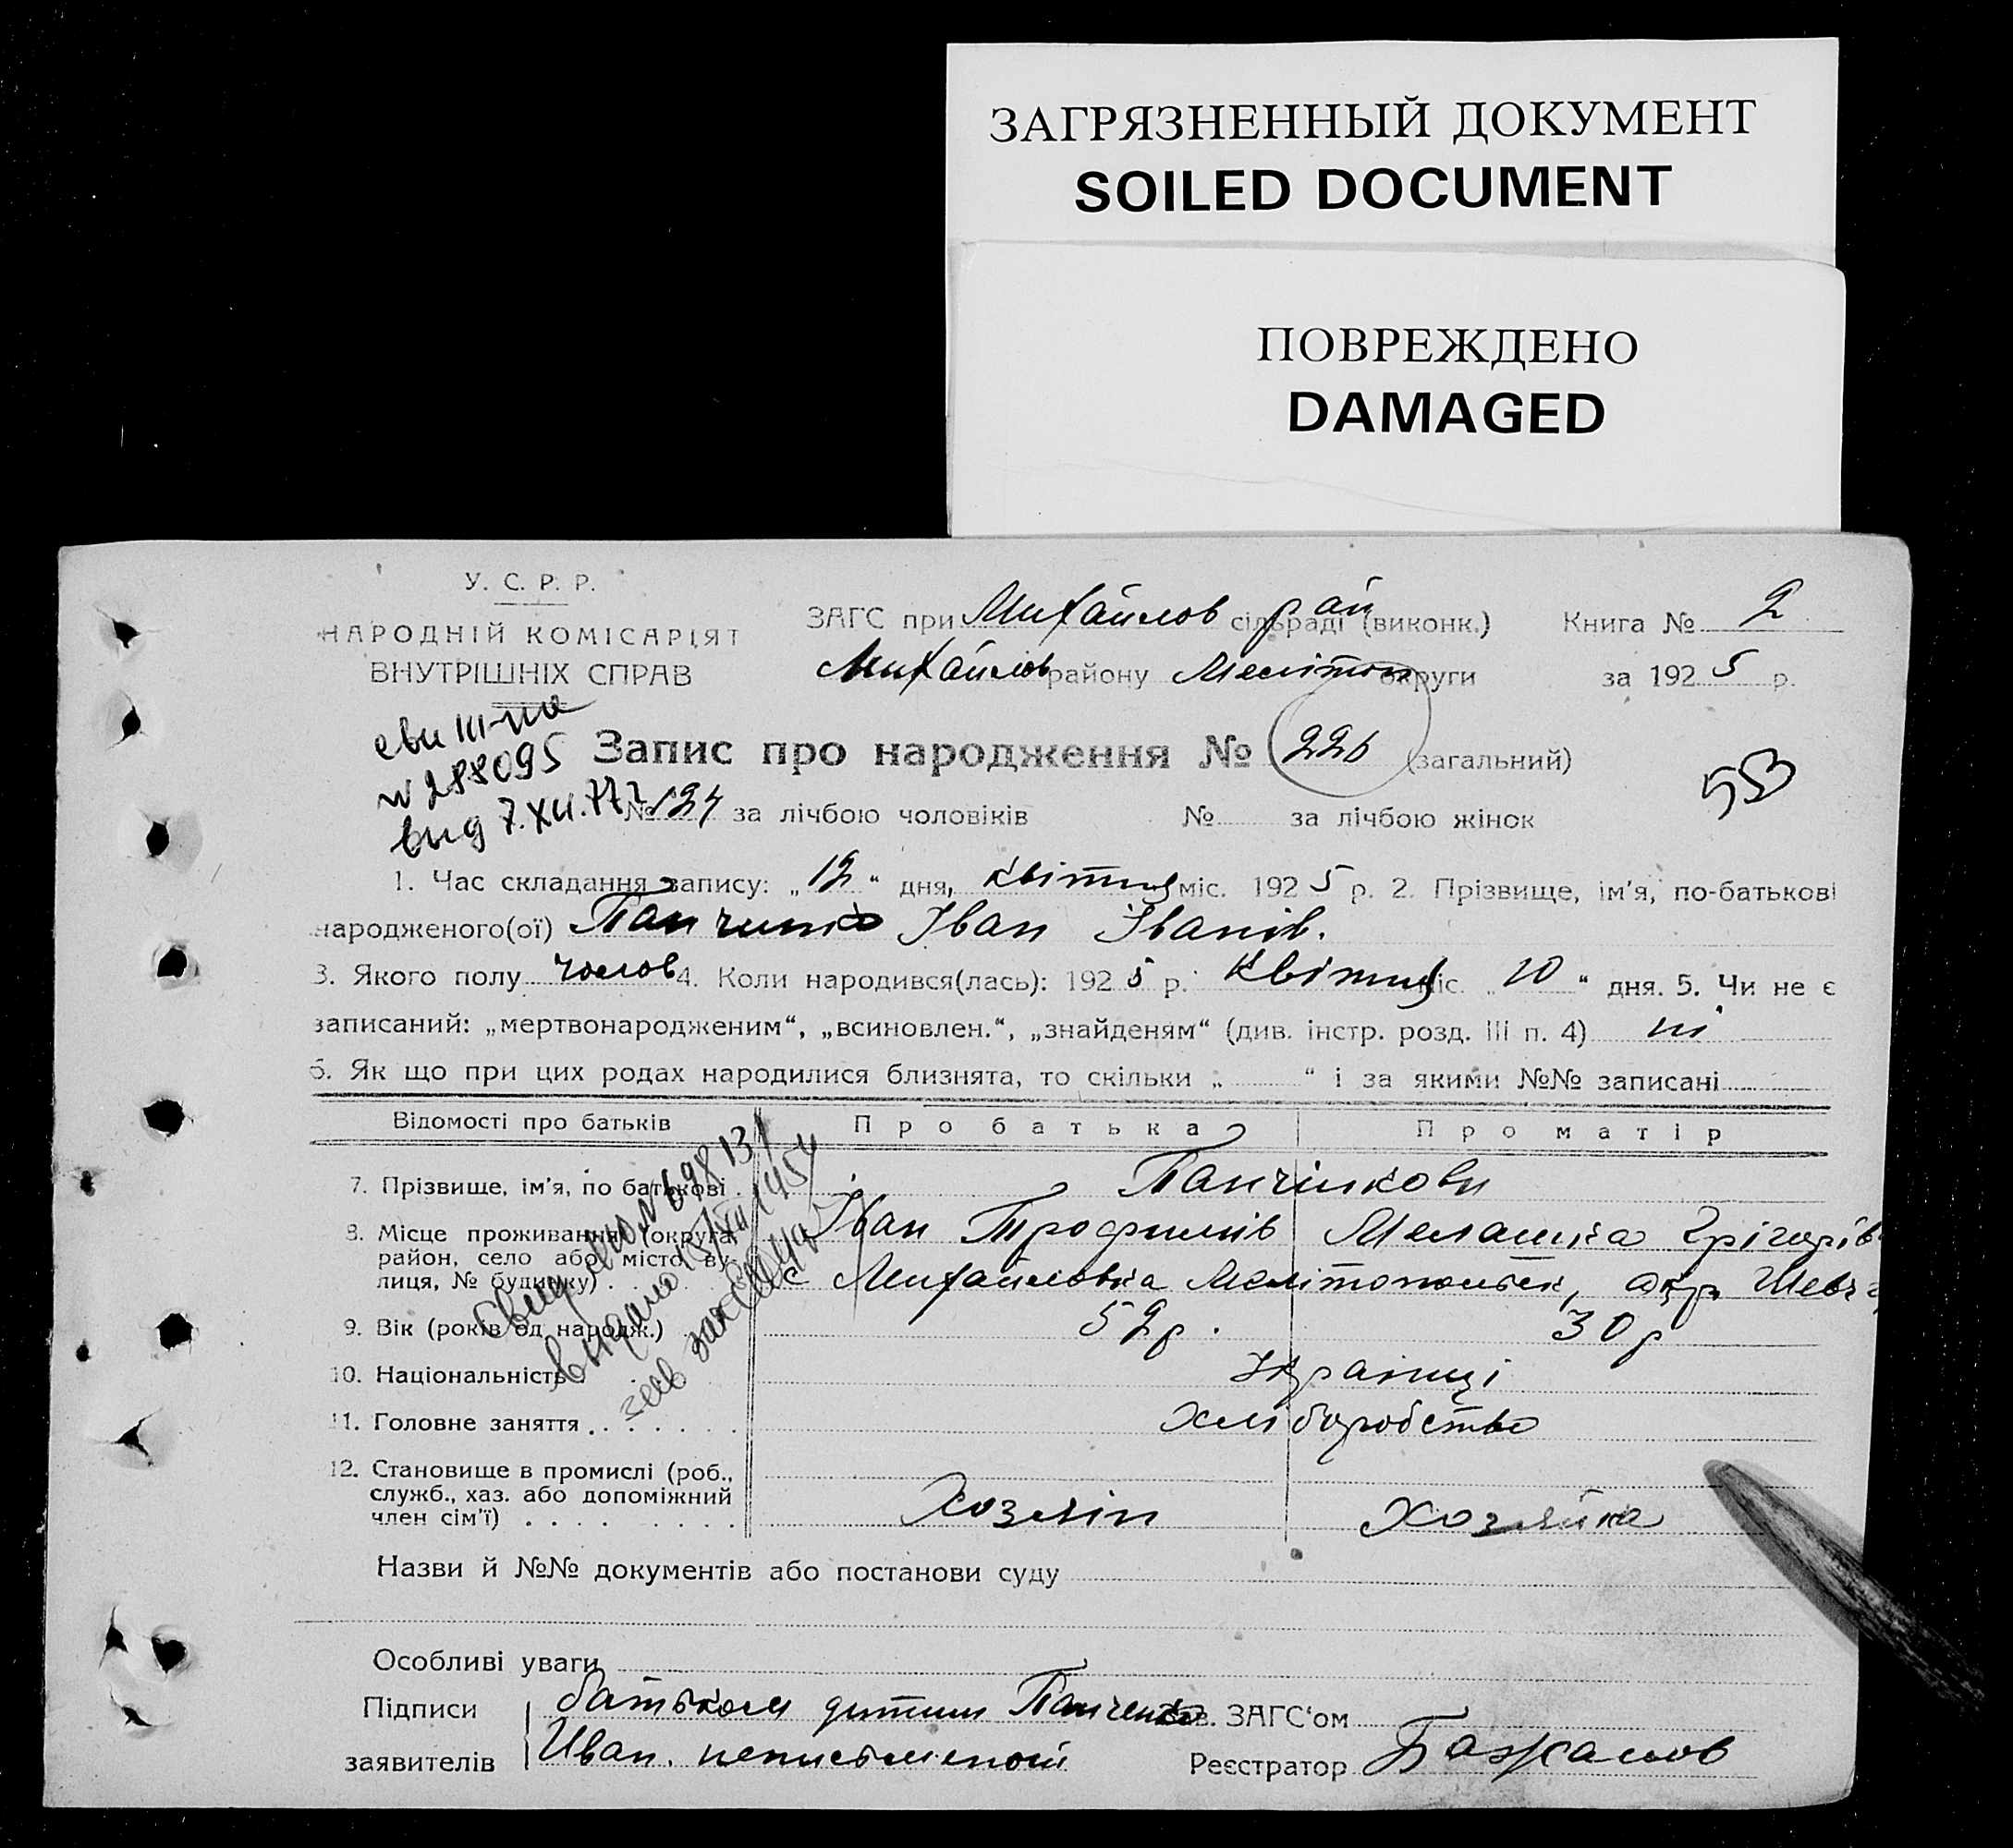 ЗАГРЯЗНЕННЫЙ ДОКУМЕНТ
SOILED DOCUMENT
ПОВРЕЖДЕНО
DAMAGED
У. С. Р. Р.
НАРОДНІЙ КОМІСАРІЯТ
ВНУТРІШНІХ СПРАВ
ЗАГС при Михайлов сільраді рай (виконк.) Книга № 2
Михайлов району Мелітоп округи за 1925 р.
№ 288095
вид 7.XII.77
Запис про народження № 226 (загальний)
53
№ 124 за лічбою чоловіків № за лічбою жінок
1. Час складання запису: „12“ дня, квітня міс. 1925 р. 2. Прізвище, ім'я, по-батькові
народженого(ої) Панченко Іван Іванів.
3. Якого полу чолов 4. Коли народився(лась): 1925 р. квітня міс. „10“ дня. 5. Чи не є
записаний: „мертвонародженим“, „всиновлен.“, „знайденям“ (див. інстр. розд. III п. 4) ні
6. Як що при цих родах народилися близнята, то скільки „ “ і за якими №№ записані
Відомості про батьків Про батька Про матір
7. Прізвище, ім'я, по батькові Панчінкови
8. Місце проживання (округа, Іван Трофимів Меланка Грігорів
район, село або місто, ву-
лиця, № будинку) с Михайловка Мелітопольск, окр.
9. Вік (років од народж.) 52 р. 30 р
10. Національність Українці
11. Головне заняття хліборобство
12. Становище в промислі (роб.,
служб., хаз. або допоміжний
член сім'ї) Хозяін Хозяйка
Назви й №№ документів або постанови суду
Особливі уваги
Підписи батьком дитини Панченко Зав. ЗАГС‘ом
заявителів Иван. неписьменой Реєстратор Бажанов